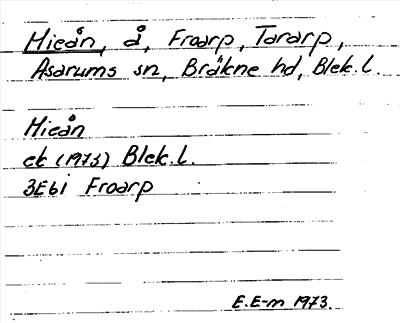 Mieån, å, Froarp, Tararp,
Asarums sn, Bräkne hd, Blek.l.
Mieån
ek (1973) Blek.l.
3E6i Froarp
E.E-m 1973.